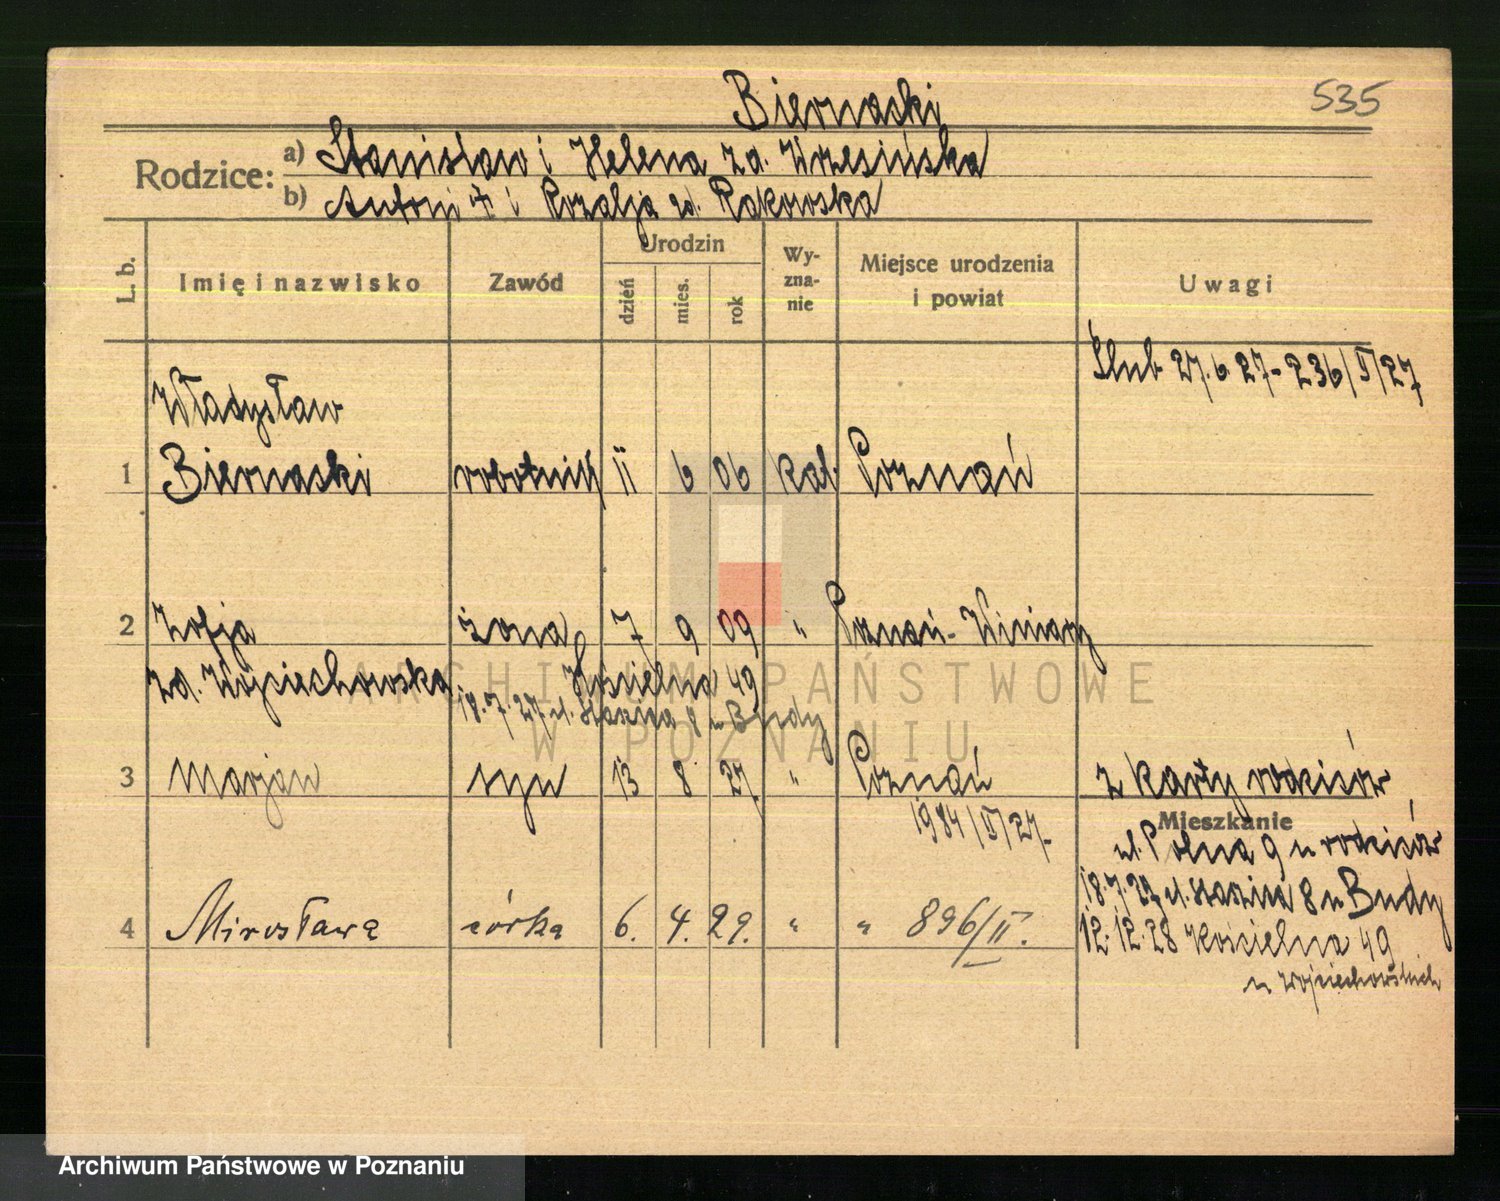 Biernaski
535
Rodzice: a) Stanisław i Helena zd. Wrzesińska
b) Antoni ✝ i Rozalja zd. Rakowska
L. b.
Imię i nazwisko
Zawód
Urodzin
dzień
mies.
rok
Wy-
zna-
nie
Miejsce urodzenia
i powiat
Uwagi
Ślub 27.6 27-236/II/27
Władysław
1 Biernaski robotnik 11 6 06 kat. Poznań
2 Zofja żona 7 9 09 " Poznań-Winiary
zd. Wojciechowska Kościelna 49
18.7.27 ul. 8 u Budy
3 Marjan syn 13 8 27 " Poznań z karty rodziców
1984/II/27.
Mieszkanie
ul. Polna 9 u rodziców
18.7.27 ul. 8 u Budy
4 Mirosława córka 6. 4. 29. " " 896/II.
12.12.28 Kościelna 49
u Wojciechowskich
ARCHIWUM PAŃSTWOWE
W POZNANIU
Archiwum Państwowe w Poznaniu